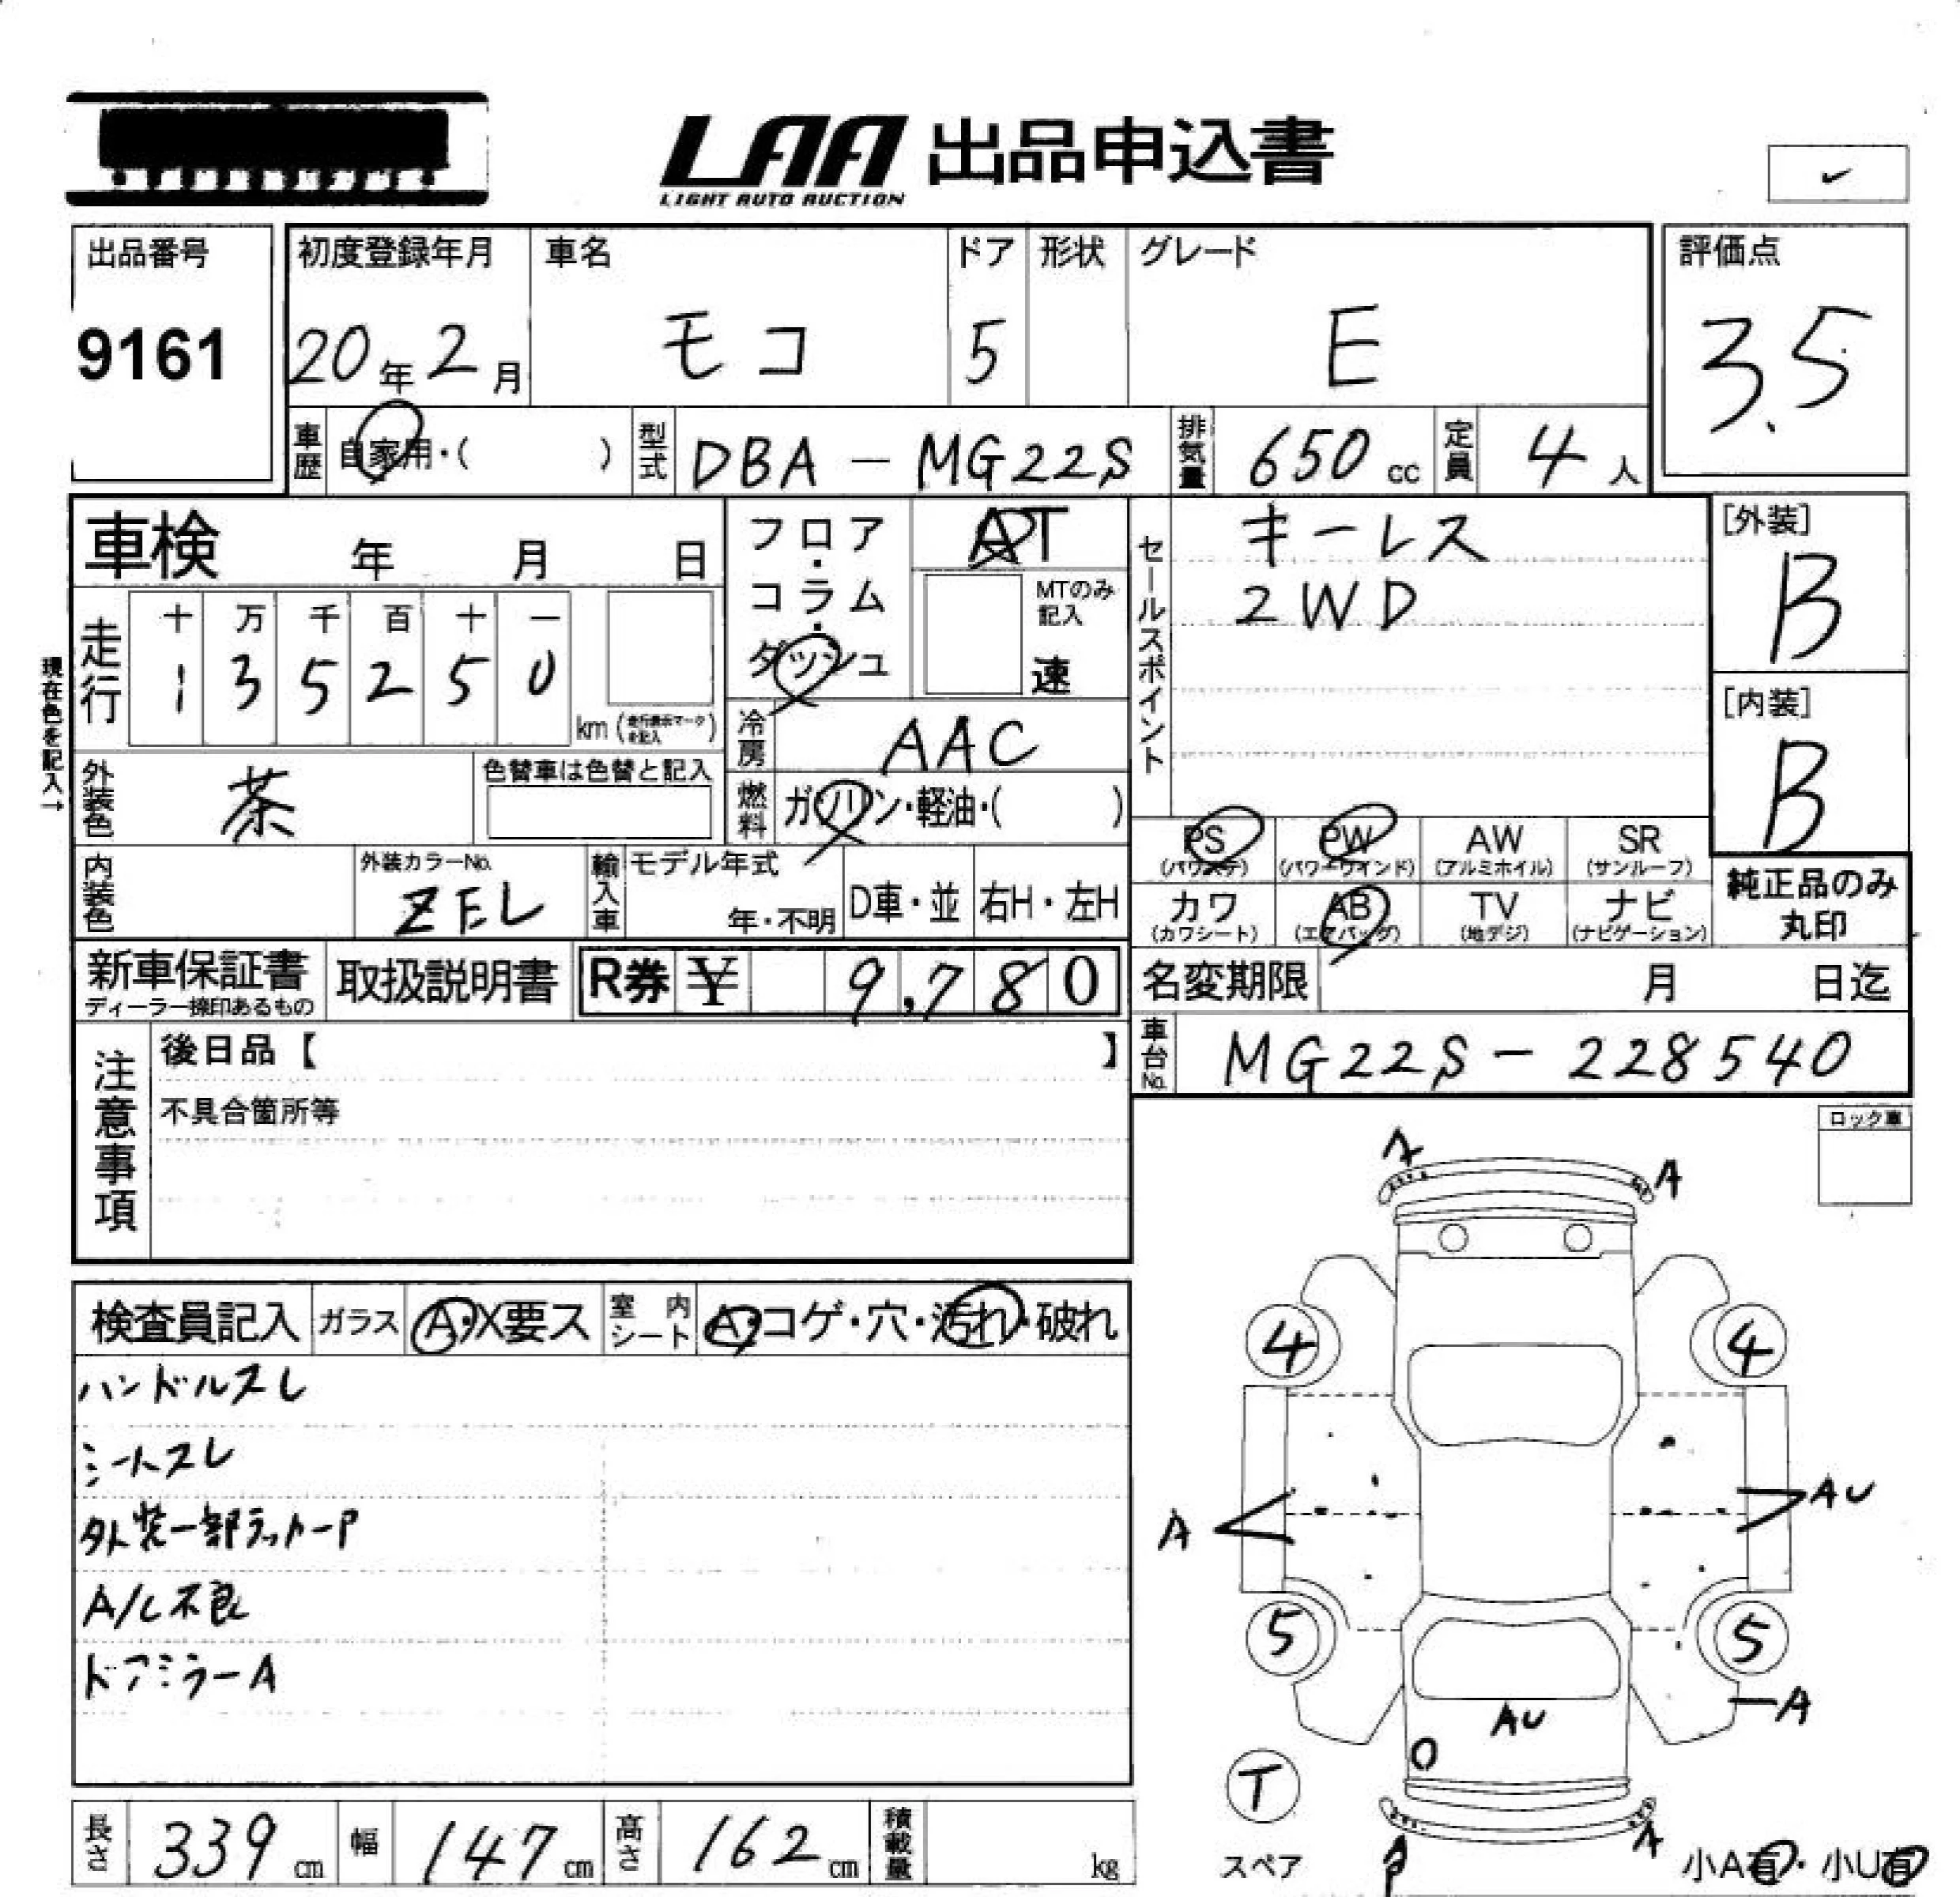 LAA 出品申込書
LIGHT AUTO AUCTION
出品番号
9161
初度登録年月
20年2月
車名
モコ
ドア
5
形状
グレード
E
評価点
3.5
車歴 自家用・( )
型式 DBA-MG22S
排気量 650cc
定員 4人
車検 年 月 日
フロア・コラム・ダッシュ
AT
MTのみ記入
速
セールスポイント
キーレス
2WD
[外装]
B
[内装]
B
現在色を記入→
走行
十 万 千 百 十 一
1 3 5 2 5 0
km (走行表示マークを記入)
冷房 AAC
外装色 茶
色替車は色替と記入
燃料 ガソリン・軽油・( )
PS (パワステ)
PW (パワーウインド)
AW (アルミホイル)
SR (サンルーフ)
カワ (カワシート)
AB (エアバッグ)
TV (地デジ)
ナビ (ナビゲーション)
純正品のみ丸印
内装色
外装カラーNo.
ZEL
輸入車
モデル年式
年・不明
D車・並
右H・左H
新車保証書
ディーラー捺印あるもの
取扱説明書
R券 ¥ 9,780
名変期限 月 日迄
車台No. MG22S-228540
注意事項
後日品【 】
不具合箇所等
ロック車
検査員記入
ガラス A・X要ス
室内シート A・コゲ・穴・汚れ・破れ
ハンドルスレ
シートスレ
外装一部タッカーP
A/C不良
ドアミラーA
A
A
4
4
A
AU
5
5
A
AU
O
T
スペア
A
P
A
小A有・小U有
長さ 339cm
幅 147cm
高さ 162cm
積載量 kg